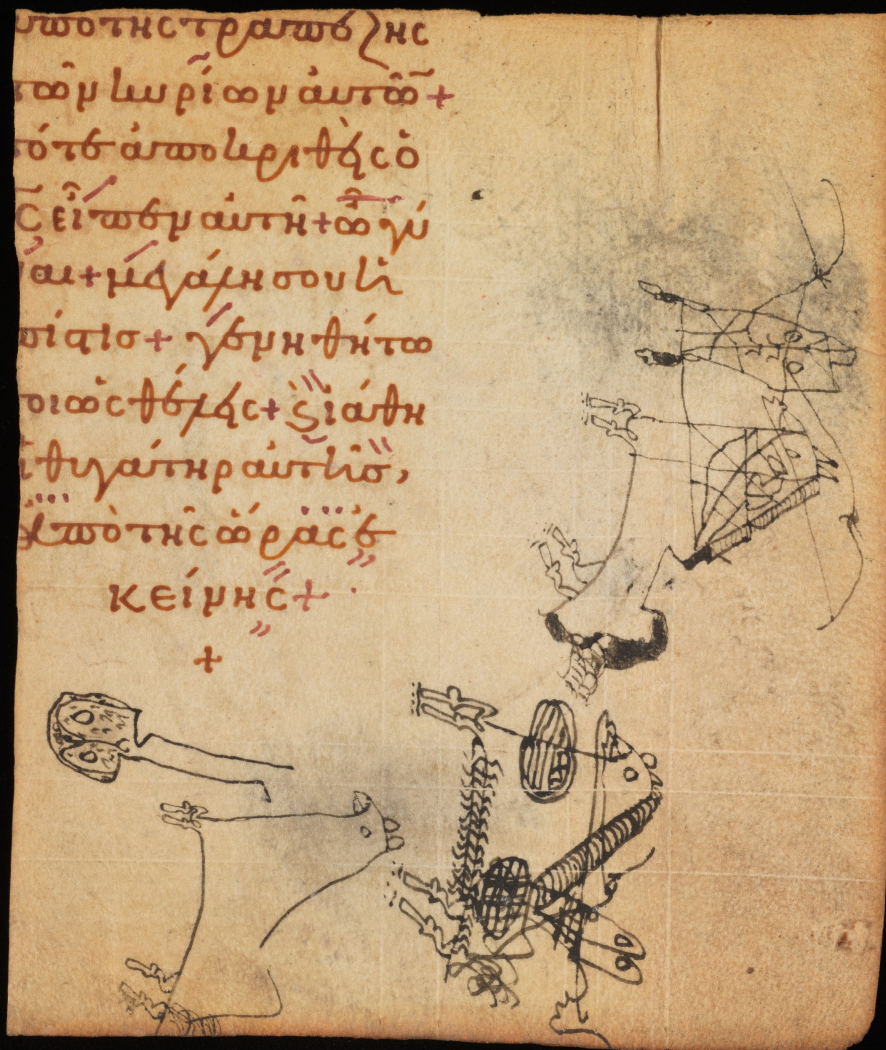 ἀπὸ τῆς τραπέζης
τῶν κυρίων αὐτῶ̅ +
τότε ἀποκριθεὶς ὁ
ι̅ς̅ εἶπεν αὐτῆ + ὦ γύ
ναι + μεγάλη σου ἡ
πίστισ + γενηθήτω
σοι ὡς θέλεις + ϗ ἰάθη
ἡ θυγάτηρ αὐτῆσ,
ἀπὸ τῆς ὥρας ἐ
κείνης +
+